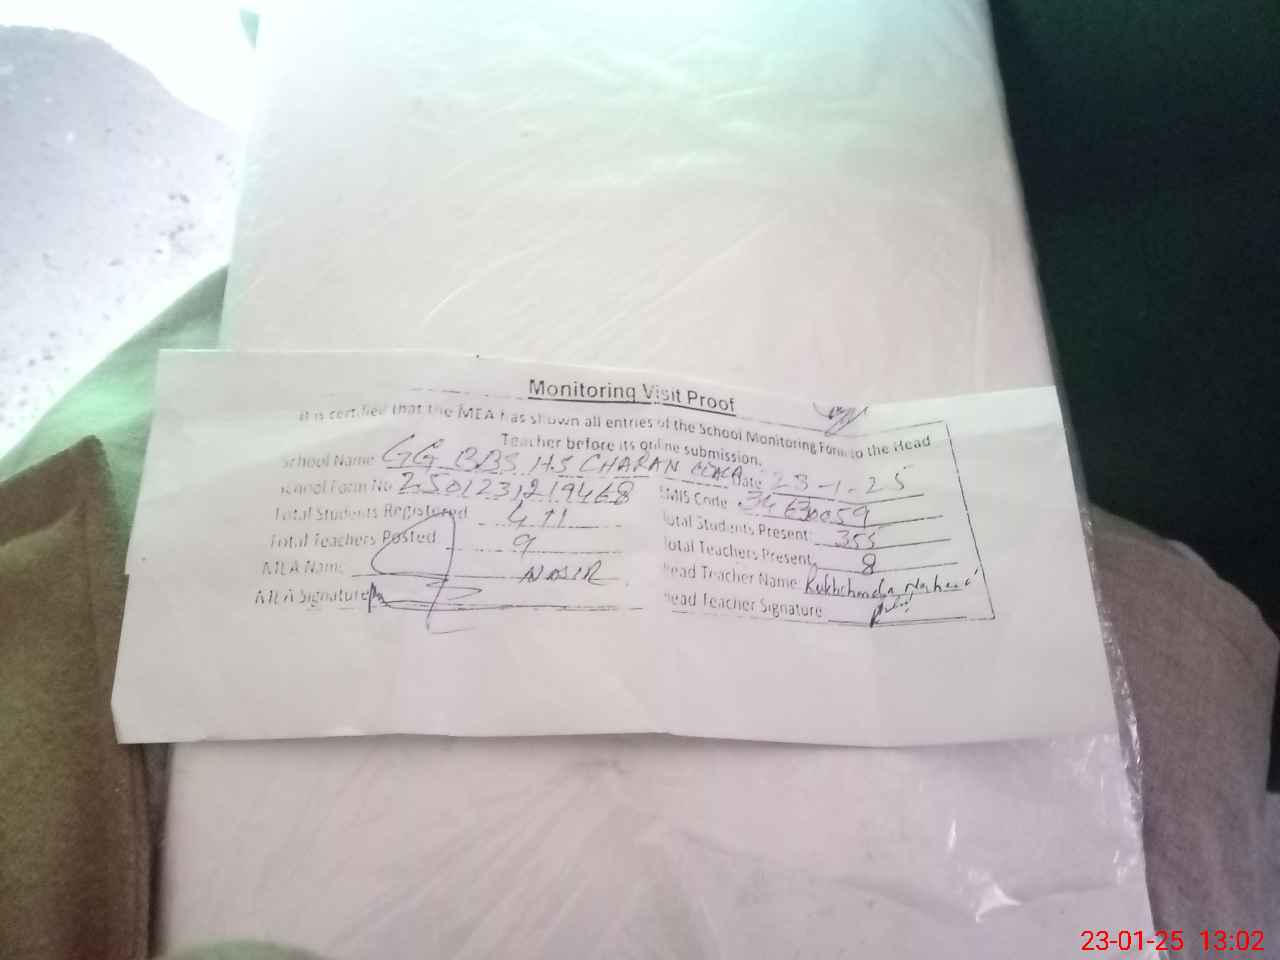 Monitoring Visit Proof
It is certified that the MEA has shown all entries of the School Monitoring Form to the Head
Teacher before its online submission.
School Name GG BBS HS CHARAN Date 23-1-25
School Form No 2501231219468 EMIS Code 34630059
Total Students Registered 411 Total Students Present 355
Total Teachers Posted 9 Total Teachers Present 8
MEA Name NASIR Head Teacher Name
MEA Signature Head Teacher Signature
23-01-25 13:02